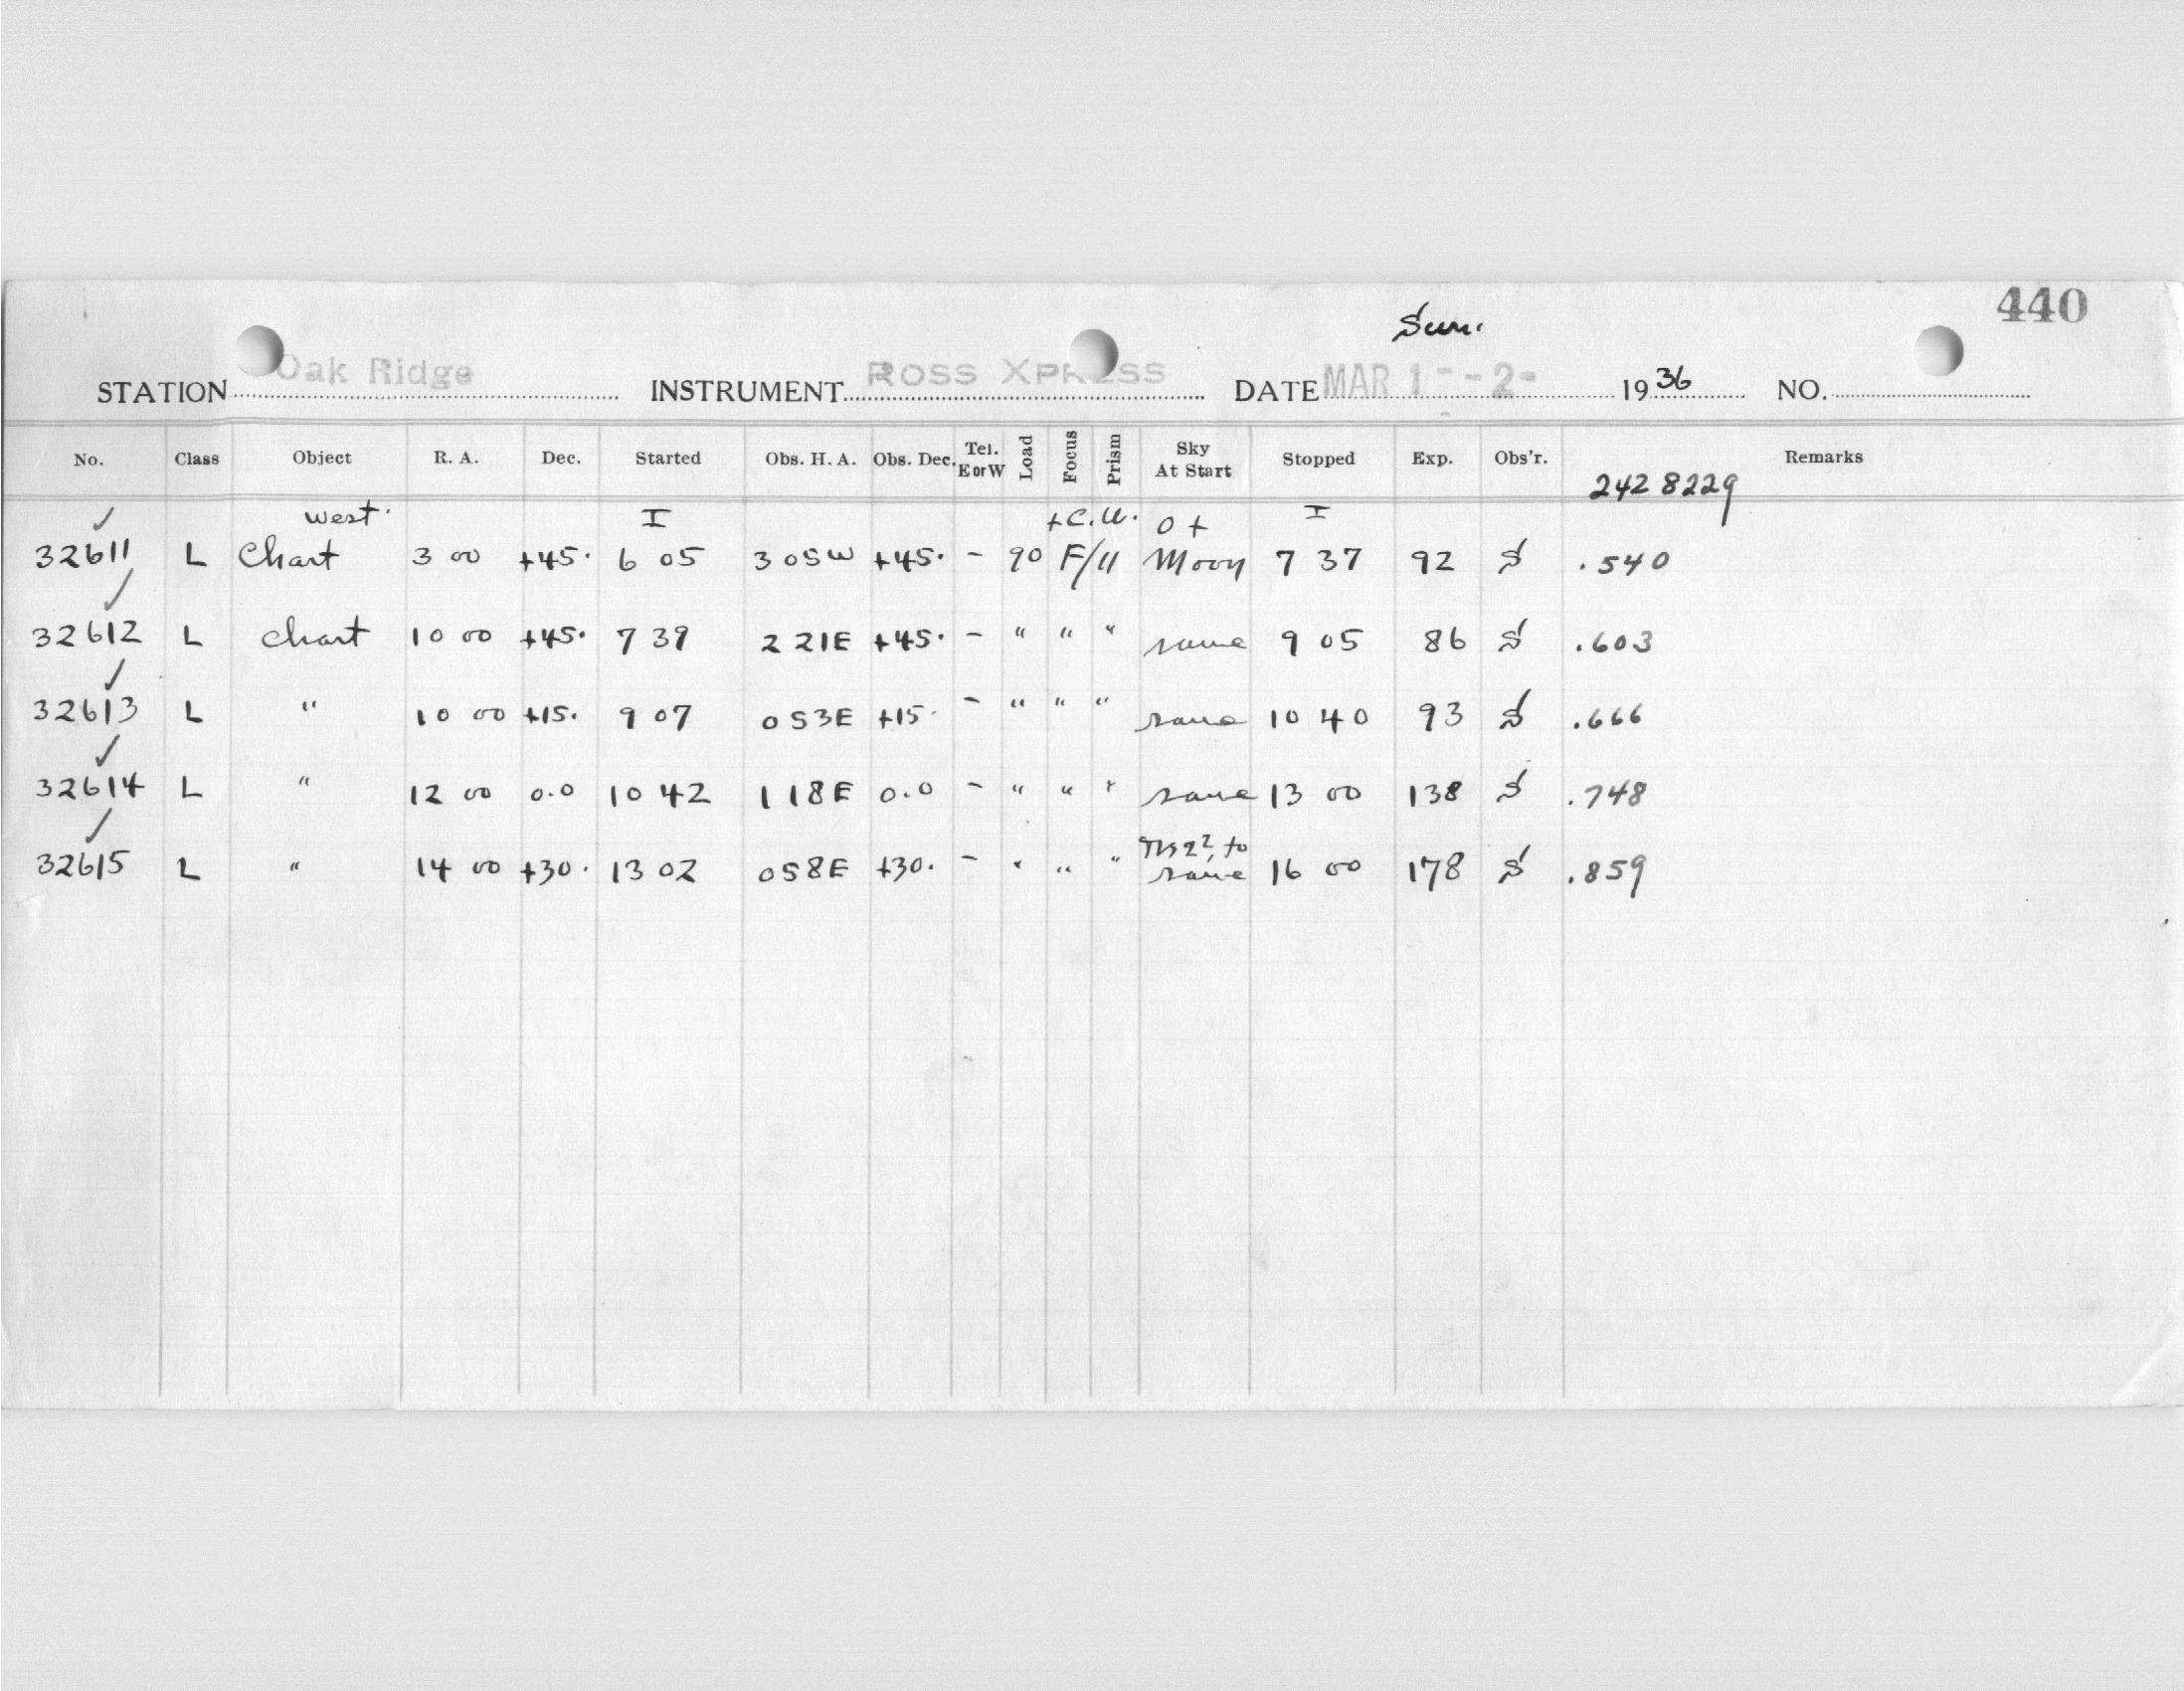 440
Sun.
STATION Oak Ridge INSTRUMENT ROSS XPRESS DATE MAR 1 - - 2 - 1936 NO.
No. Class Object R. A. Dec. Started Obs. H. A. Obs. Dec. Tel. E or W Load Focus Prism Sky At Start Stopped Exp. Obs'r. Remarks
2428229
west. I +C.U. 0 + I
32611 L Chart 3 00 +45. 6 05 3 05W +45. - 90 F/11 Moon 7 37 92 S .540
32612 L Chart 10 00 +45. 7 39 2 21E +45. - " " " same 9 05 86 S .603
32613 L " 10 00 +15. 9 07 0 53E +15. - " " " same 10 40 93 S .666
32614 L " 12 00 0.0 10 42 1 18E 0.0 - " " " same 13 00 138 S .748
to
32615 L " 14 00 +30. 13 02 0 58E +30. - " " " same 16 00 178 S .859